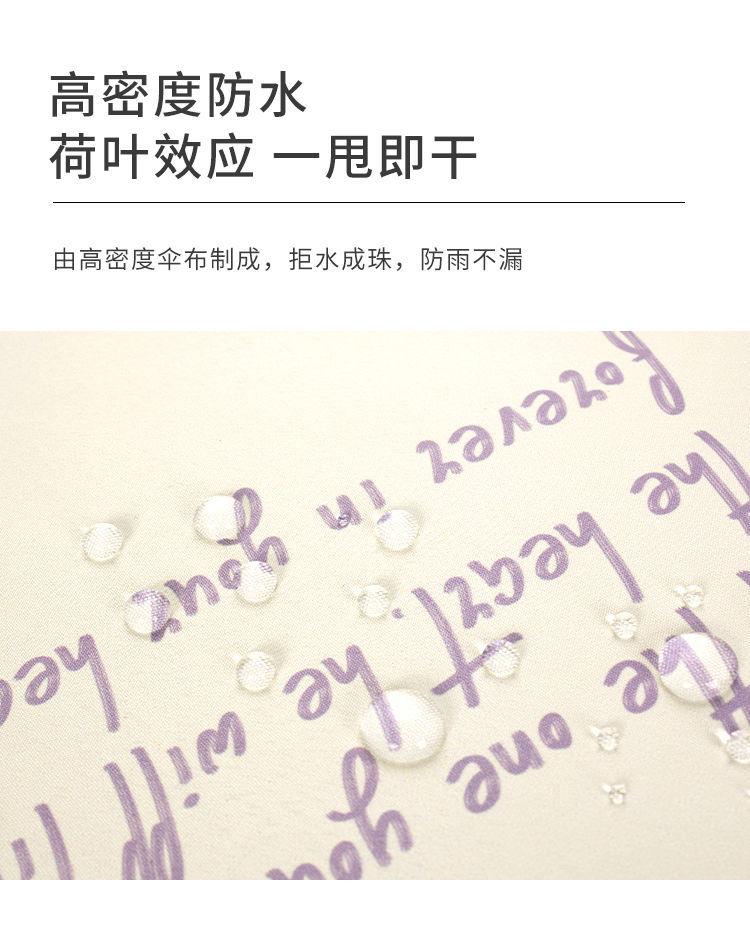 高密度防水
荷叶效应 一甩即干
由高密度伞布制成，拒水成珠，防雨不漏
the one you
the heart. he will
forever in your